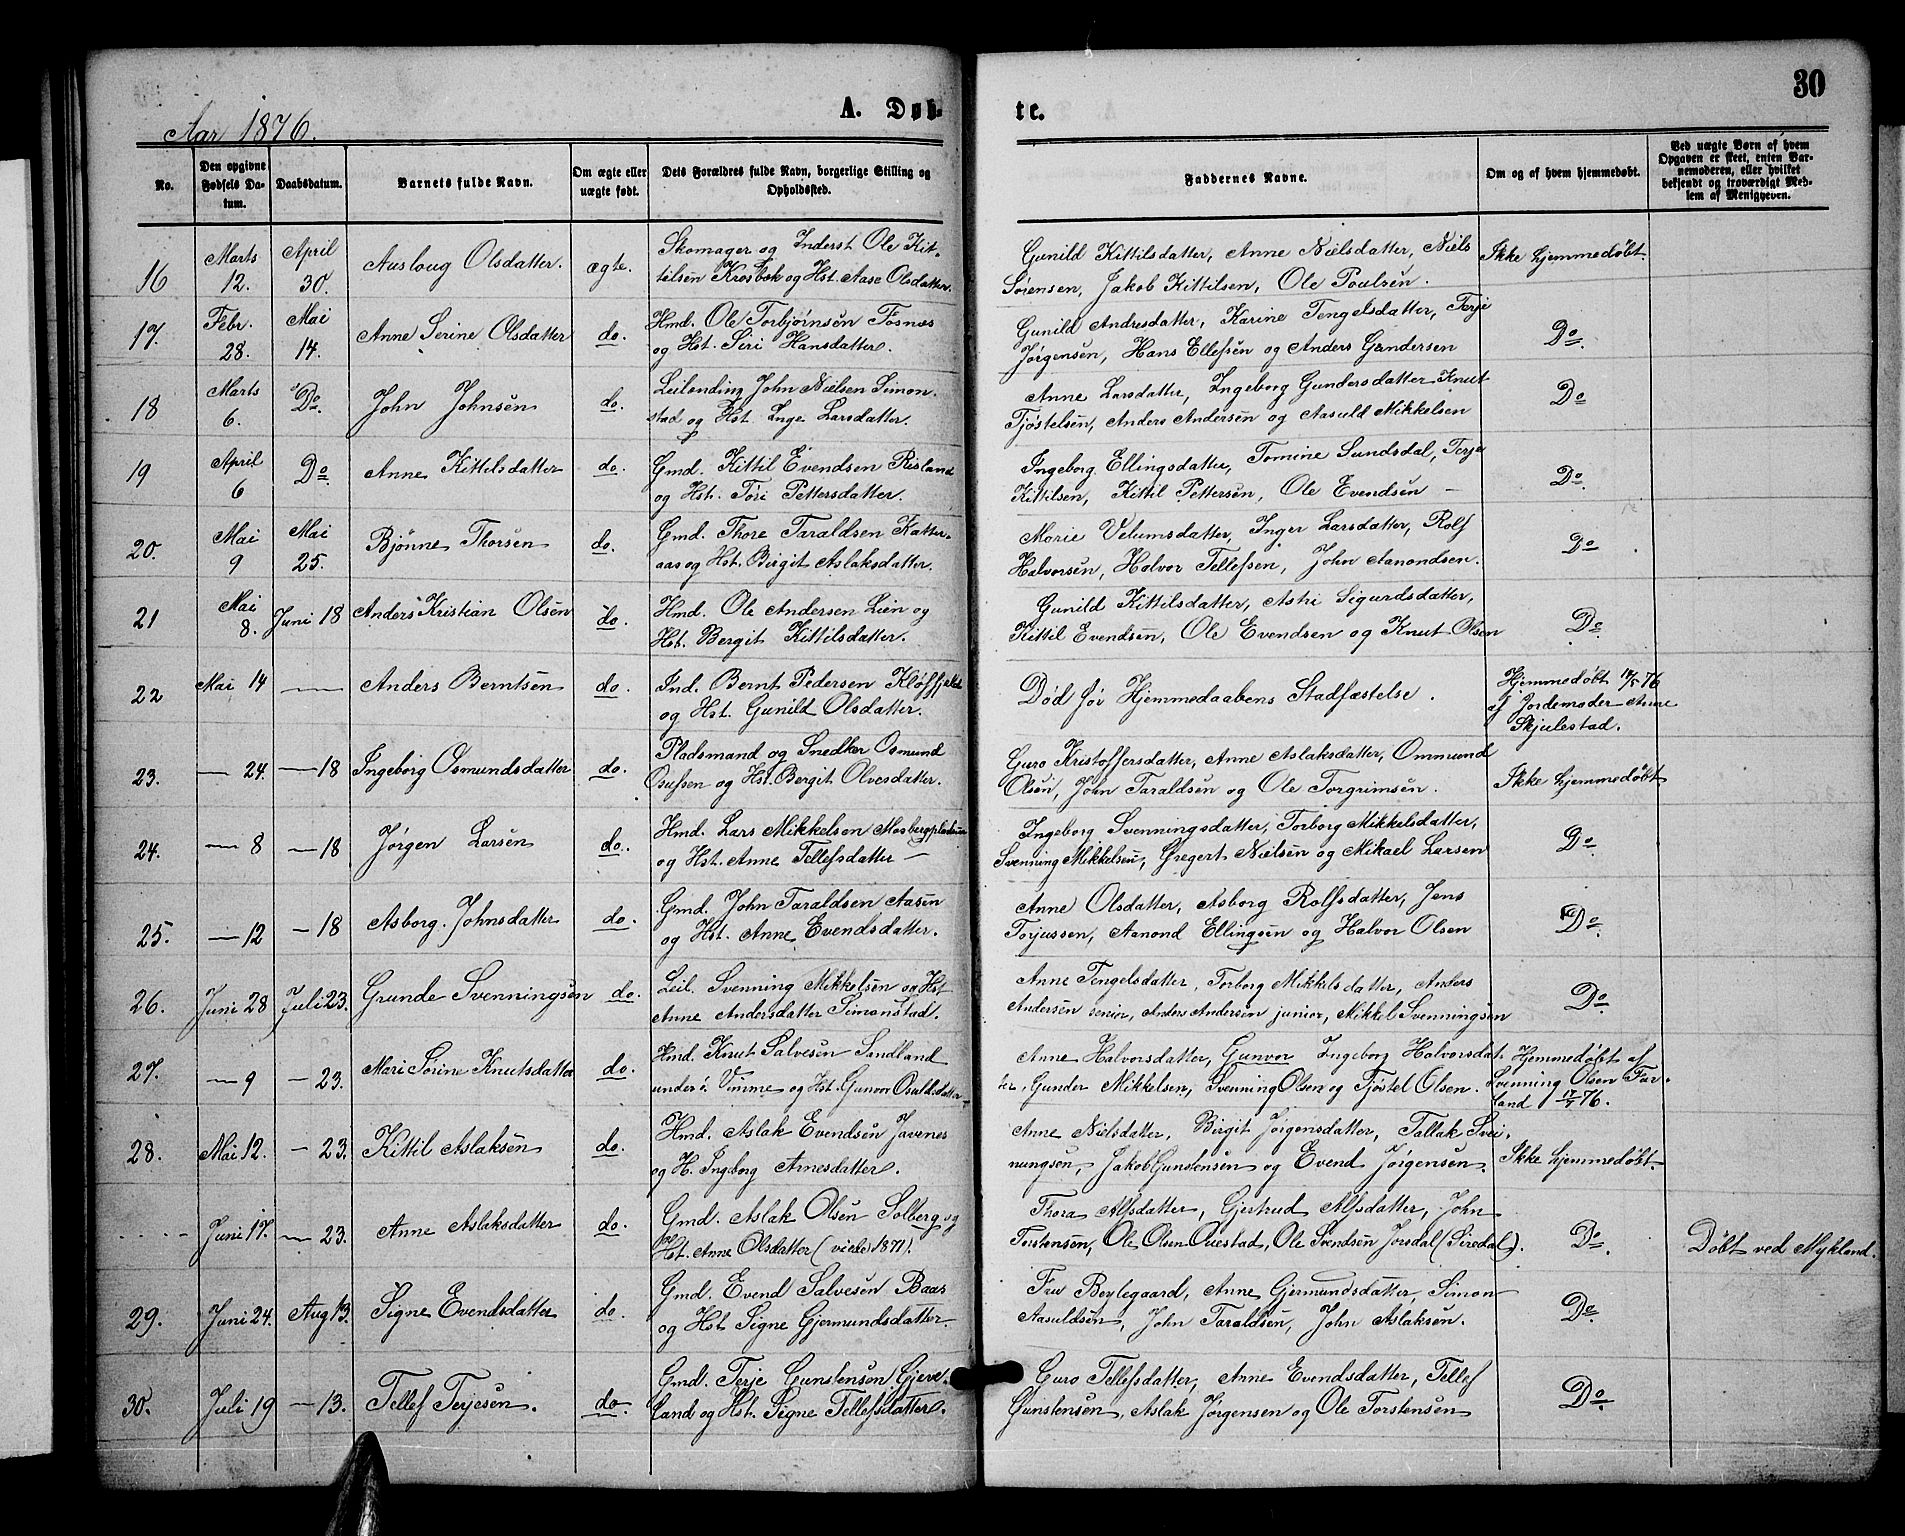 30
A. Døb-
te.
Aar 1876.
No.
Den opgivne Fødsels Da-
tum.
Daabsdatum.
Barnets fulde Navn.
Om ægte eller
uægte født.
Dets Forældres fulde Navn, borgerlige Stilling og
Opholdssted.
Faddernes Navne.
Om og af hvem hjemmedøbt.
Ved uægte Børn af hvem
Opgaven er skeet, enten Bar-
nemoderen, eller hvilket
bekjendt og troværdigt Med-
lem af Menigheden.
16 Marts 12. April 30. Auslaug Olsdatter. ægte. Skomager og Inderst Ole Kit-
tilsen Krosbek og Hst. Aase Olsdatter.
Gunild Kittilsdatter, Anne Nielsdatter, Niels
Sørensen, Jakob Kittilsen, Ole Poulsen. Ikke hjemmedøbt.
17. Febr. 28. Mai 14. Anne Serine Olsdatter do. Hmd. Ole Torbjørnsen Fosnæs
og Hst. Seri Hansdatter.
Gunild Andresdatter, Karine Tengelsdatter, Terje
Jørgensen, Hans Ellefsen og Anders Gundersen Do.
18 Marts 6. Do John Johnsen do. Leilending John Nielsen Simon-
stad og Hst. Inge Larsdatter.
Anne Larsdatter, Ingeborg Gundersdatter, Knut
Tjøstelsen, Anders Andersen og Aasuld Mikkelsen Do
19 April 6 Do Anne Kittilsdatter do. Gmd. Kittil Evendsen Risland
og Hst. Tøri Pettersdatter.
Ingeborg Ellingsdatter, Tomine Sundsdal, Terje
Kittilsen, Kittil Pettersen, Ole Evendsen — Do.
20. Mai 9 Mai 25. Bjønne Thorsen do. Gmd. Thore Taraldsen Katter-
aas og Hst. Birgit Aslaksdatter.
Marie Velumsdatter, Inger Larsdatter, Rolf
Halvorsen, Halvor Tellefsen, John Aanondsen. Do
21 Mai 8. Juni 18 Anders Kristian Olsen do. Hmd. Ole Andersen Lien og
Hst. Bergit Kittilsdatter.
Gunild Kittilsdatter, Astri Sigurdsdatter,
Kittil Evendsen, Ole Evendsen og Knut Olsen Do.
22 Mai 14 — Anders Berntsen do. Ind. Bernt Pedersen Kløffjeld
og Hst. Gunild Olsdatter.
Død før Hjemmedaabens Stadfæstelse. Hjemmedøbt 14/5 76
af Jordemoder Anne
Skjulestad.
23. — 24. — 18 Ingeborg Osmundsdatter do. Pladsmand og Snedker Osmund
Osufsen og Hst. Bergit Olvesdatter.
Guro Kristoffersdatter, Anne Aslaksdatter, Ommund
Olsen, John Taraldsen og Ole Torgrimsen. Ikke hjemmedøbt
24. — 8 — 18 Jørgen Larsen do. Hmd. Lars Mikkelsen
og Hst. Anne Tellefsdatter —
Ingeborg Svenningsdatter, Torborg Mikkelsdatter,
Svenning Mikkelsen, Gregert Nielsen og Mikael Larsen Do.
25. — 12 — 18 Asborg Johnsdatter do. Gmd. John Taraldsen Aasen
og Hst. Anne Evendsdatter.
Anne Olsdatter, Asborg Rolfsdatter, Jens
Torjussen, Aanond Ellingsen og Halvor Olsen Do.
26. Juni 28 Juli 23. Grunde Svenningsen do. Leil. Svenning Mikkelsen og Hst
Anne Andersdatter Simonstad.
Anne Tengelsdatter, Torborg Mikkelsdatter, Anders
Andersen senior, Anders Andersen junior, Mikkel Svenningsen Do.
27. — 9 — 23. Mari Sørine Knutsdatter do. Hmd. Knut Salvesen Sandland
under Vimme og Hst. Gunvor Osuldsdatter
Anne Halvorsdatter, Gunvor Ingeborg Halvorsdat-
ter, Gunder Mikkelsen, Svenning Olsen og Tjøstel Olsen. Hjemmedøbt af
Svenning Olsen For-
land 17/7 76.
28. Mai 12. — 23. Kittil Aslaksen do. Hmd. Aslak Evendsen Javenes
og H. Ingborg Arnesdatter.
Anne Nielsdatter, Birgit Jørgensdatter, Tallak Svei-
nungsen, Jakob Gunstensen og Evend Jørgensen. Ikke hjemmedøbt.
.... Juni 17. — 23. Anne Aslaksdatter do. Gmd. Aslak Olsen Solberg og
Hst. Anne Olsdatter (viede 1871).
Thora Alfsdatter, Gjertrud Alfsdatter, John
Tostensen, Ole Olsen Ouestad, Ole Svendsen Jorsdal (Siredal). Do. Døbt ved Mykland.
29. Juni 24. Aug 13. Signe Evendsdatter do. Gmd. Evend Salvesen Baas
og Hst Signe Gjermundsdatter
Fru Beylegaard, Anne Gjermundsdatter, Simon
Aasuldsen, John Taraldsen, John Aslaksen. Do.
30. Juli 19 — 13. Tellef Terjesen. do. Gmd. Terje Gunstensen Gjeve-
land og Hst. Signe Tellefsdatter.
Guro Tellefsdatter, Anne Evendsdatter, Tellef
Gunstensen, Aslak Jørgensen og Ole Torstensen Do.